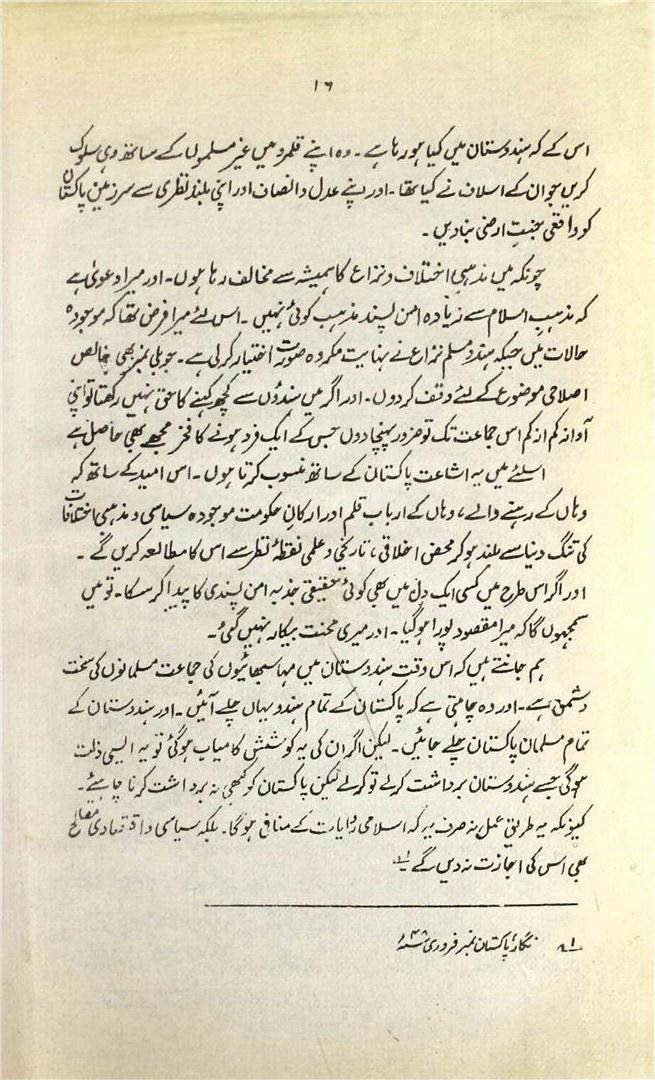 ۱۶
اس کے کہ ہندوستان میں کیا ہو رہا ہے۔ وہ اپنے قلمرو میں غیر مسلموں کے ساتھ وہی سلوک
کریں جو ان کے اسلاف نے کیا تھا۔ اور اپنے عدل و انصاف اور اپنی بلند نظری سے سرزمین پاکستان
کو واقعی جنتِ ارضی بنا دیں۔
چونکہ میں مذہبی اختلاف و نزاع کا ہمیشہ سے مخالف رہا ہوں۔ اور میرا دعویٰ ہے
کہ مذہبِ اسلام سے زیادہ امن پسند مذہب کوئی نہیں۔ اس لئے میرا فرض تھا کہ موجودہ
حالات میں جبکہ ہندو مسلم نزاع نے نہایت مکروہ صورت اختیار کر لی ہے۔ جوبلی نمبر بھی خالص
اصلاحی موضوع کے لئے وقف کر دوں۔ اور اگر میں ہندؤں سے کچھ کہنے کا حق نہیں رکھتا تو اپنی
آواز کم از کم اس جماعت تک تو ضرور پہنچا دوں جس کے ایک فرد ہونے کا فخر مجھے بھی حاصل ہے
اسلئے میں یہ اشاعت پاکستان کے ساتھ منسوب کرتا ہوں۔ اس امید کے ساتھ کہ
وہاں کے رہنے والے، وہاں کے اربابِ قلم اور ارکانِ حکومت موجودہ سیاسی و مذہبی اختلافات
کی تنگ دنیا سے بلند ہو کر محض اخلاقی، تاریخی و علمی نقطۂ نظر سے اس کا مطالعہ کریں گے۔
اور اگر اس طرح میں کسی ایک دل میں بھی کوئی حقیقی جذبہ امن پسندی کا پیدا کر سکا۔ تو میں
سمجھوں گا کہ میرا مقصود پورا ہو گیا۔ اور میری محنت بیکار نہیں گئی۔
ہم جانتے ہیں کہ اس وقت ہندوستان میں مہا سبھائیوں کی جماعت مسلمانوں کی سخت
دشمن ہے۔ اور وہ چاہتی ہے کہ پاکستان کے تمام ہندو یہاں چلے آئیں۔ اور ہندوستان کے
تمام مسلمان پاکستان چلے جائیں۔ لیکن اگر ان کی یہ کوشش کامیاب ہو گئی تو یہ ایسی ذلت
ہو گی جسے ہندوستان برداشت کر لے تو کر لے لیکن پاکستان کو کبھی نہ برداشت کرنا چاہیئے۔
کیونکہ یہ طریقِ عمل نہ صرف یہ کہ اسلامی روایات کے منافی ہو گا۔ بلکہ سیاسی و اقتصادی مصالح
بھی اس کی اجازت نہ دیں گے ؎۱
؎۱ نگار، پاکستان نمبر فروری ۴۸ء